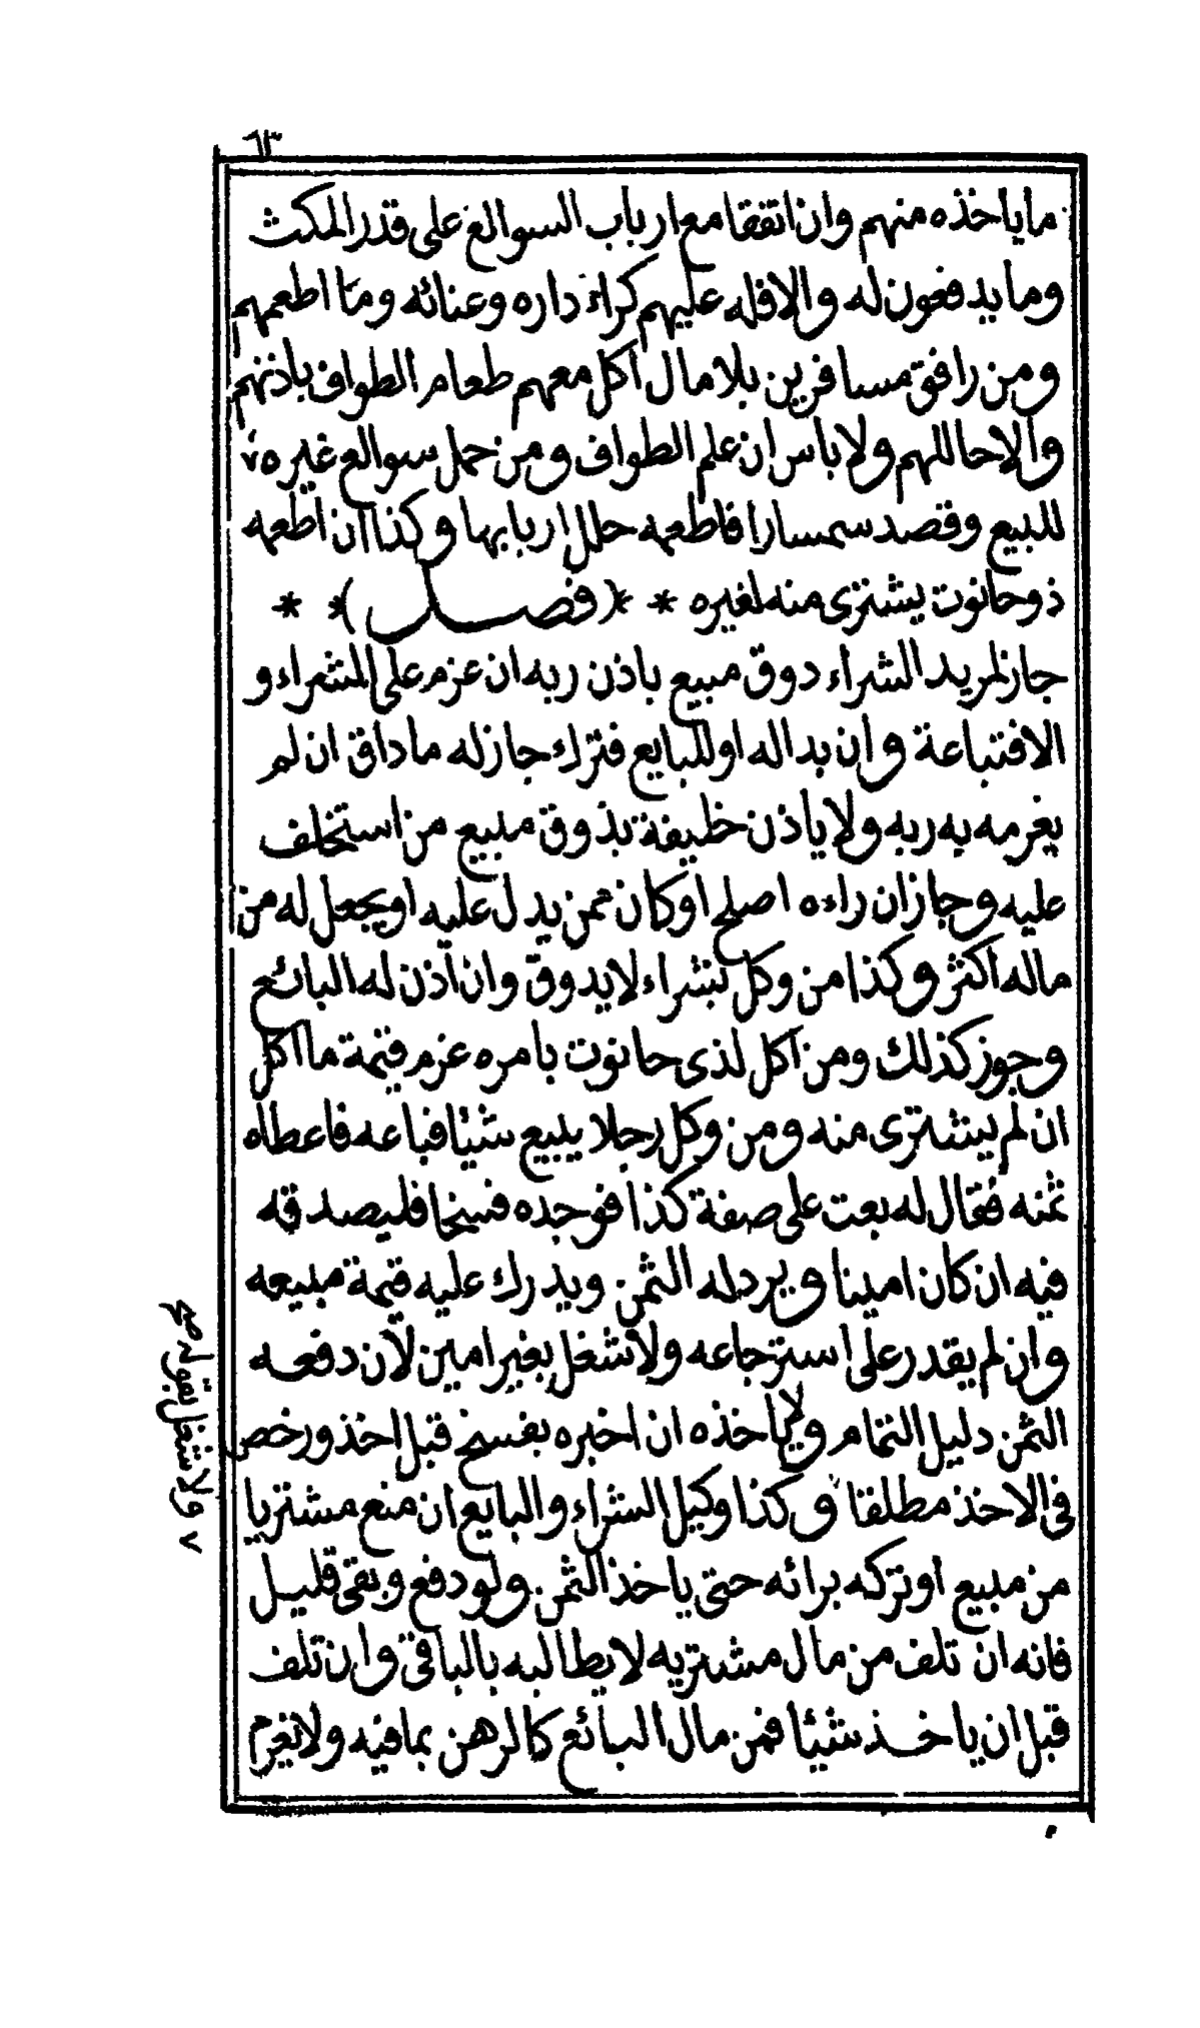 ٦٣
ما ياخذه منهم وان اتفقا مع ارباب السوالع على قدر المكث
وما يدفعون له والا فله عليهم كراء داره وعنائه وما اطعمهم
ومن رافق مسافرين بلا مال اكل معهم طعام الطواف باذنهم
والا حاللهم ولا باس ان علم الطواف ومن حمل سوالع غيره
للبيع وقصد سمسارا فاطعمه حلل اربابها وكذا ان اطعمه
ذو حانوت يشترى منه لغيره * *( فصل )* *
جاز لمريد الشراء ذوق مبيع باذن ربه ان عزم على الشراء و
الا فتباعة وان بدا له او للبايع فترك جاز له ما ذاق ان لم
يغرمه به ربه ولا ياذن خليفة بذوق مبيع من استخلف
عليه وجاز ان راءه اصلح او كان ممن يدل عليه او يجعل له من
ماله اكثر وكذا من وكل بشراء لا يذوق وان اذن له البائع
وجوز كذلك ومن اكل لذى حانوت بامره غرم قيمة ما اكل
ان لم يشترى منه ومن وكل رجلا يبيع شيئا فباعه فاعطاه
ثمنه فقال له بعت على صفة كذا فوجده فسخا فليصدقه
فيه ان كان امينا ويرد له الثمن ويدرك عليه قيمة مبيعه
وان لم يقدر على استرجاعه ولا شغل بغير امين لان دفعه
الثمن دليل التمام ولا ياخذه ان اخبره بفسخ قبل اخذ ورخص
فى الاخذ مطلقا وكذا وكيل الشراء والبايع ان منع مشتريا
من مبيع او تركه برائه حتى ياخذ الثمن ولو دفع وبقى قليل
فانه ان تلف من مال مشتريه لا يطالبه بالباقى وان تلف
قبل ان ياخذ شيئا فمن مال البائع كالرهن بما فيه ولا يغرم
٧ ولا شتغل بقوله صح